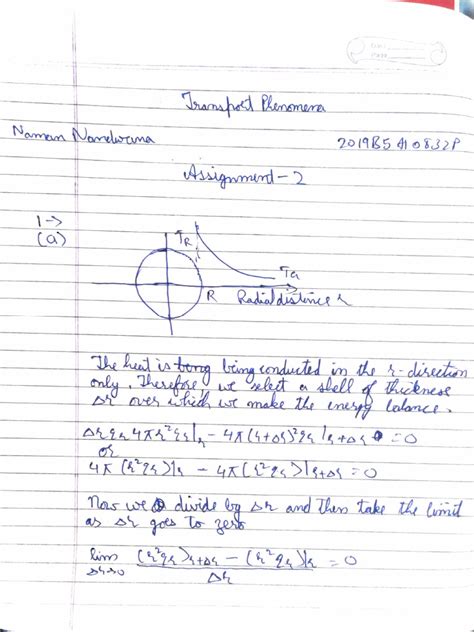 Transport Phenomena
Naman Nandwana 2019B5A10832P
Assignment-2
1→
(a)
TR
Ta
R Radial distance r
The heat is being being conducted in the r-direction
only. Therefore we select a shell of thickness
Δr over which we make the energy balance.
4πr²qr|r - 4π(r+Δr)²qr|r+Δr = 0
or
4π(r²qr)|r - 4π(r²qr)|r+Δr = 0
Now we divide by Δr and then take the limit
as Δr goes to zero
lim (r²qr)r+Δr - (r²qr)|r = 0
Δr→0 Δr